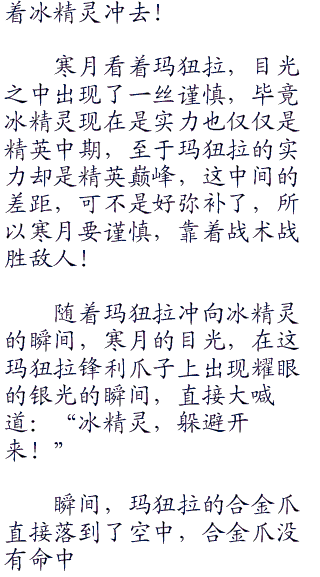 着冰精灵冲去！
寒月看着玛狃拉，目光
之中出现了一丝谨慎，毕竟
冰精灵现在是实力也仅仅是
精英中期，至于玛狃拉的实
力却是精英巅峰，这中间的
差距，可不是好弥补了，所
以寒月要谨慎，靠着战术战
胜敌人！
随着玛狃拉冲向冰精灵
的瞬间，寒月的目光，在这
玛狃拉锋利爪子上出现耀眼
的银光的瞬间，直接大喊
道：“冰精灵，躲避开
来！”
瞬间，玛狃拉的合金爪
直接落到了空中，合金爪没
有命中